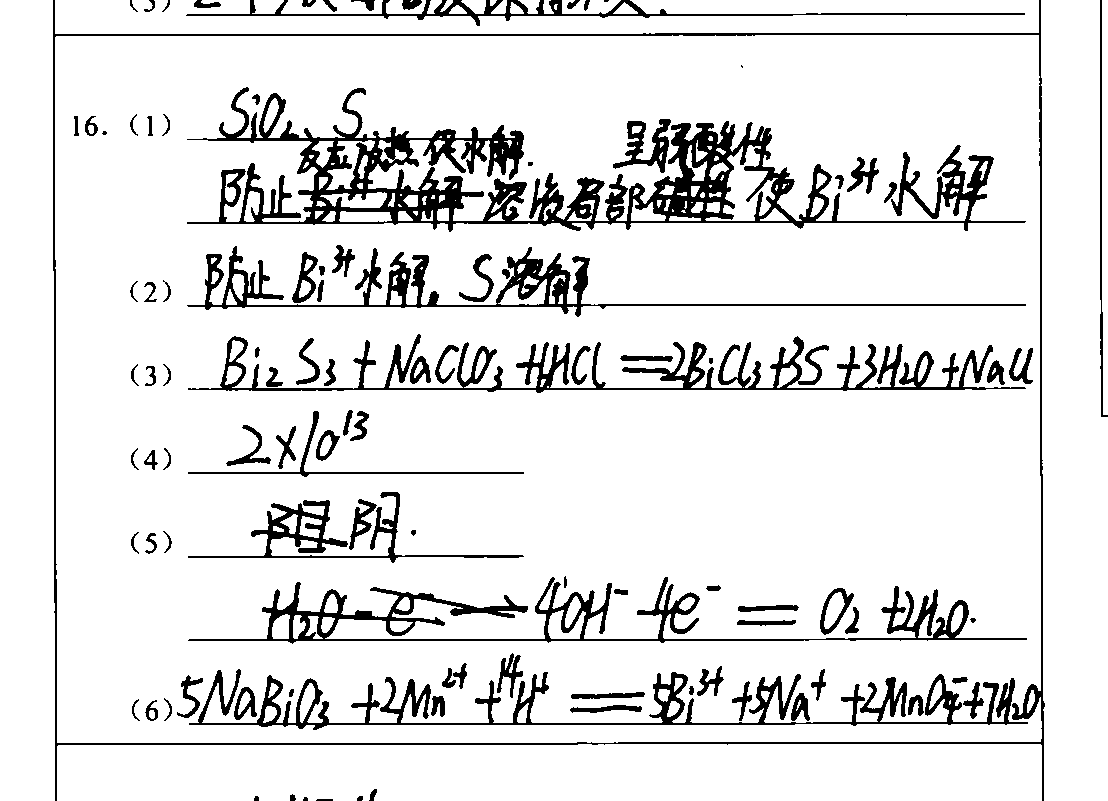 16.（1） SiO₂、S
反应放热促水解. 呈弱酸性
防止 Bi³⁺水解 溶液局部碱性 使Bi³⁺水解
（2） 防止Bi³⁺水解。S溶解.
（3） Bi₂S₃+NaClO₃+6HCl=2BiCl₃+3S+3H₂O+NaCl
（4） 2×10¹³
（5） 阳 阴.
H₂O-e⁻ 4OH⁻-4e⁻=O₂+2H₂O.
（6） 5NaBiO₃+2Mn²⁺+14H⁺=5Bi³⁺+5Na⁺+2MnO₄⁻+7H₂O